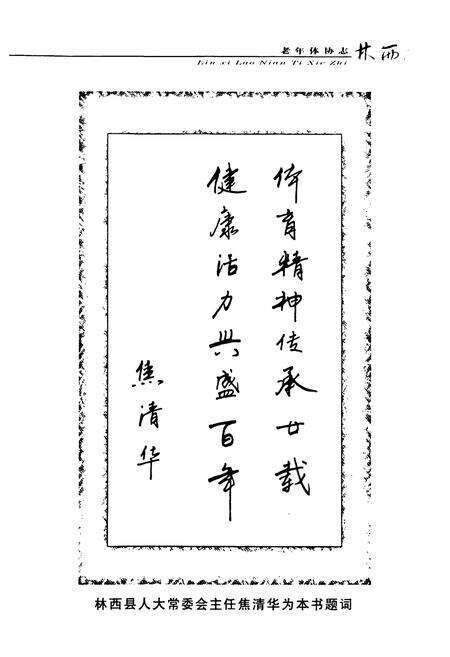 老年体协志 林西
Lin xi Lao Nian Ti Xie Zhi
体育精神传承廿载
健康活力兴盛百年
焦清华
林西县人大常委会主任焦清华为本书题词